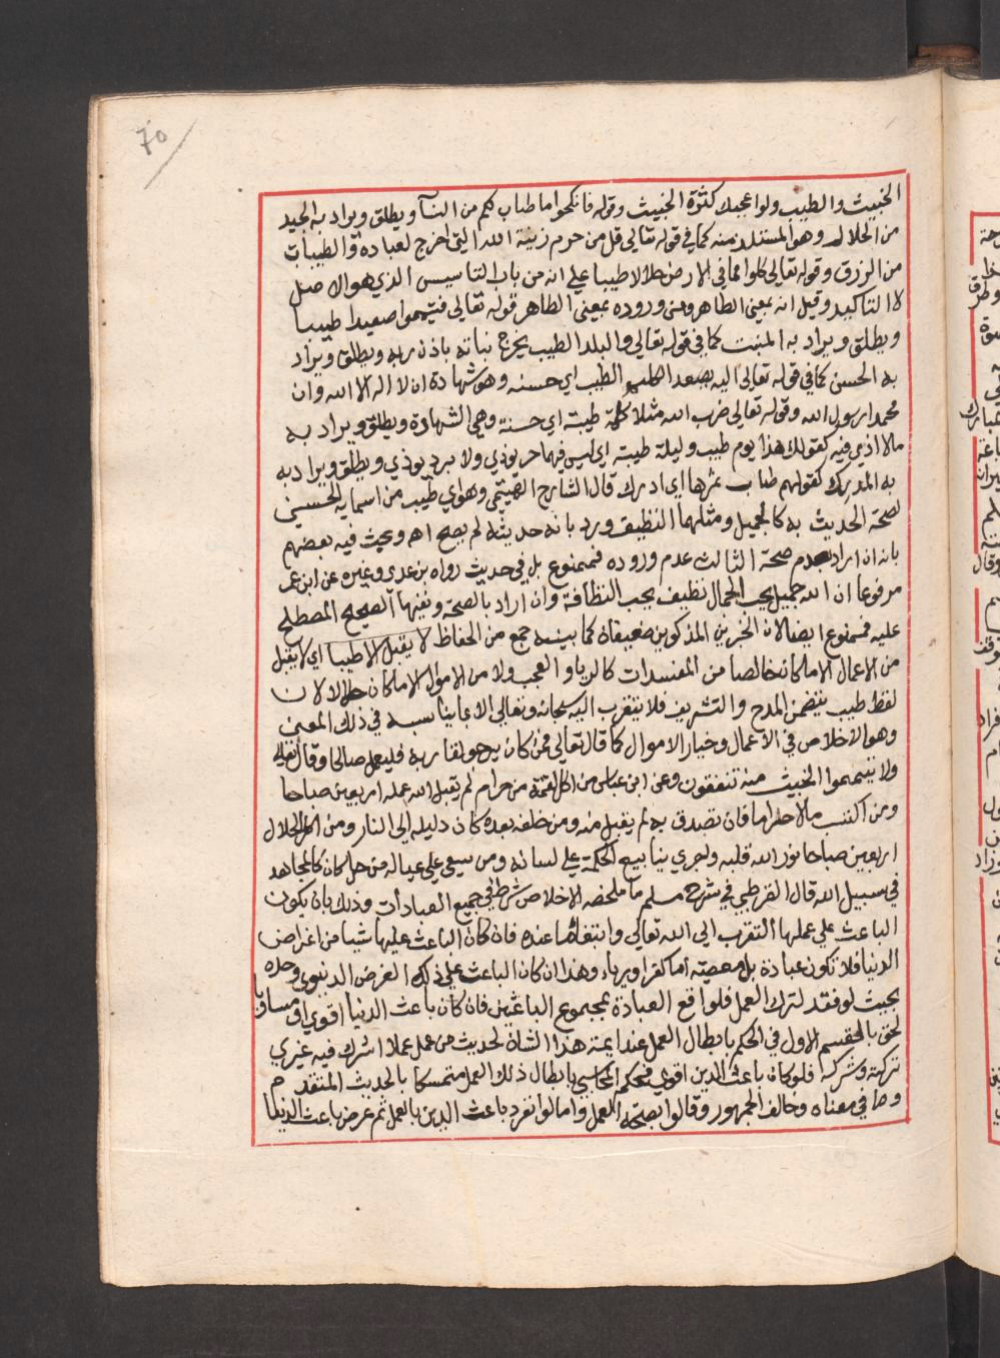 70
الخبيث والطيب ولو اعجبك كثرة الخبيث وقوله فانكحوا ما طاب لكم من النسآ ويطلق ويراد به الجيد
من الحلال وهو المستلذ منه كما في قوله تعالى قل من حرم زينة الله التي اخرج لعباده والطيبات
من الرزق وقوله تعالى كلوا مما في الارض حلالا طيبا علي انه من باب التاسيس الذي هو الاصل
لا التاكيد وقيل انه بمعني الطاهر ومن وروده بمعني الطاهر قوله تعالى فتيمموا صعيدا طيبا
ويطلق ويراد به المنبت كما في قوله تعالى والبلد الطيب يخرج نباته باذن ربه ويطلق ويراد
به الحسن كما في قوله تعالى اليه يصعد الكلم الطيب اي حسنه وهو شهادة ان لا اله الا الله وان
محمدا رسول الله وقوله تعالى ضرب الله مثلا كلمة طيبة اي حسنة وهي الشهادة ويطلق ويراد به
مالا اذي فيه كقولك هذا يوم طيب وليلة طيبة اي ليس فيهما حر يوذي ولا برد يوذي ويطلق ويراد به
به المدرك كقولهم طاب ثمرها اي ادرك قال الشارح الهيتمي وهو اي طيب من اسمايه الحسني
لصحة الحديث به كالجميل ومثلهما النظيف ورد بانه حديثه لم يصح اهـ وبحث فيه بعضهم
بانه ان اراد بعدم صحة الثالث عدم وروده فممنوع بل في حديث رواه بن عدي وغيره عن ابن عمر
مرفوعا ان الله جميل يحب الجمال نظيف يحب النظافة وان اراد بالصحة ونفيها الصحيح المصطلح
عليه فممنوع ايضا لان الخبرين المذكورين ضعيفان كما بينه جمع من الحفاظ لا يقبل الا طيبا اي لا يقبل
من الاعمال الا ما كان خالصا من المفسدات كالريا والعجب ولا من الاموال الا ما كان حلالا لان
لفظ طيب يتضمن المدح والتشريف فلا يتقرب اليه سبحانه وتعالي الا بما يناسبه في ذلك المعني
وهو الاخلاص في الاعمال وخيار الاموال كما قال تعالي فمن كان يرجو لقا ربه فليعمل عملا صالحا وقال تعالي
ولا تيمموا الخبيث منه تنفقون وعن ابن عباس من اكل لقمة من حرام لم يقبل الله عمله اربعين صباحا
ومن اكتسب مالا حراما فان تصدق به لم يقبل منه ومن خلفه بعده كان دليله الي النار ومن اكل الحلال
اربعين صباحا نور الله قلبه واجري ينابيع الحكمة علي لسانه ومن سعي علي عياله من حل كان كالمجاهد
في سبيل الله قال القرطبي في شرح مسلم ما ملخصه الاخلاص شرط في جميع العبادات وذلك بان يكون
الباعث علي عملها التقرب الي الله تعالي وابتغا ما عنده فان كان الباعث عليها شيا من اغراض
الدنيا فلا تكون عبادة بل معصية اما كفر او رياء وهذا ان كان الباعث علي ذلك الغرض الدنيوي وحده
بحيث لو فقد لترك العمل فلو اقع العبادة بمجموع الباعثين فان كان باعث الدنيا اقوي او مساويا
لحق بالقسم الاول في الحكم بابطال العمل عند ايمة هذا الشان لحديث من عمل عملا اشرك فيه غيري
تركته وشركه فلو كان باعث الدين اقوي فحكم المحاسبي بابطال ذلك العمل متمسكا بالحديث المتقدم
وما في معناه وخالف الجمهور وقالوا بصحة العمل واما لو انفرد باعث الدين بالعمل ثم عرض باعث الدنيا